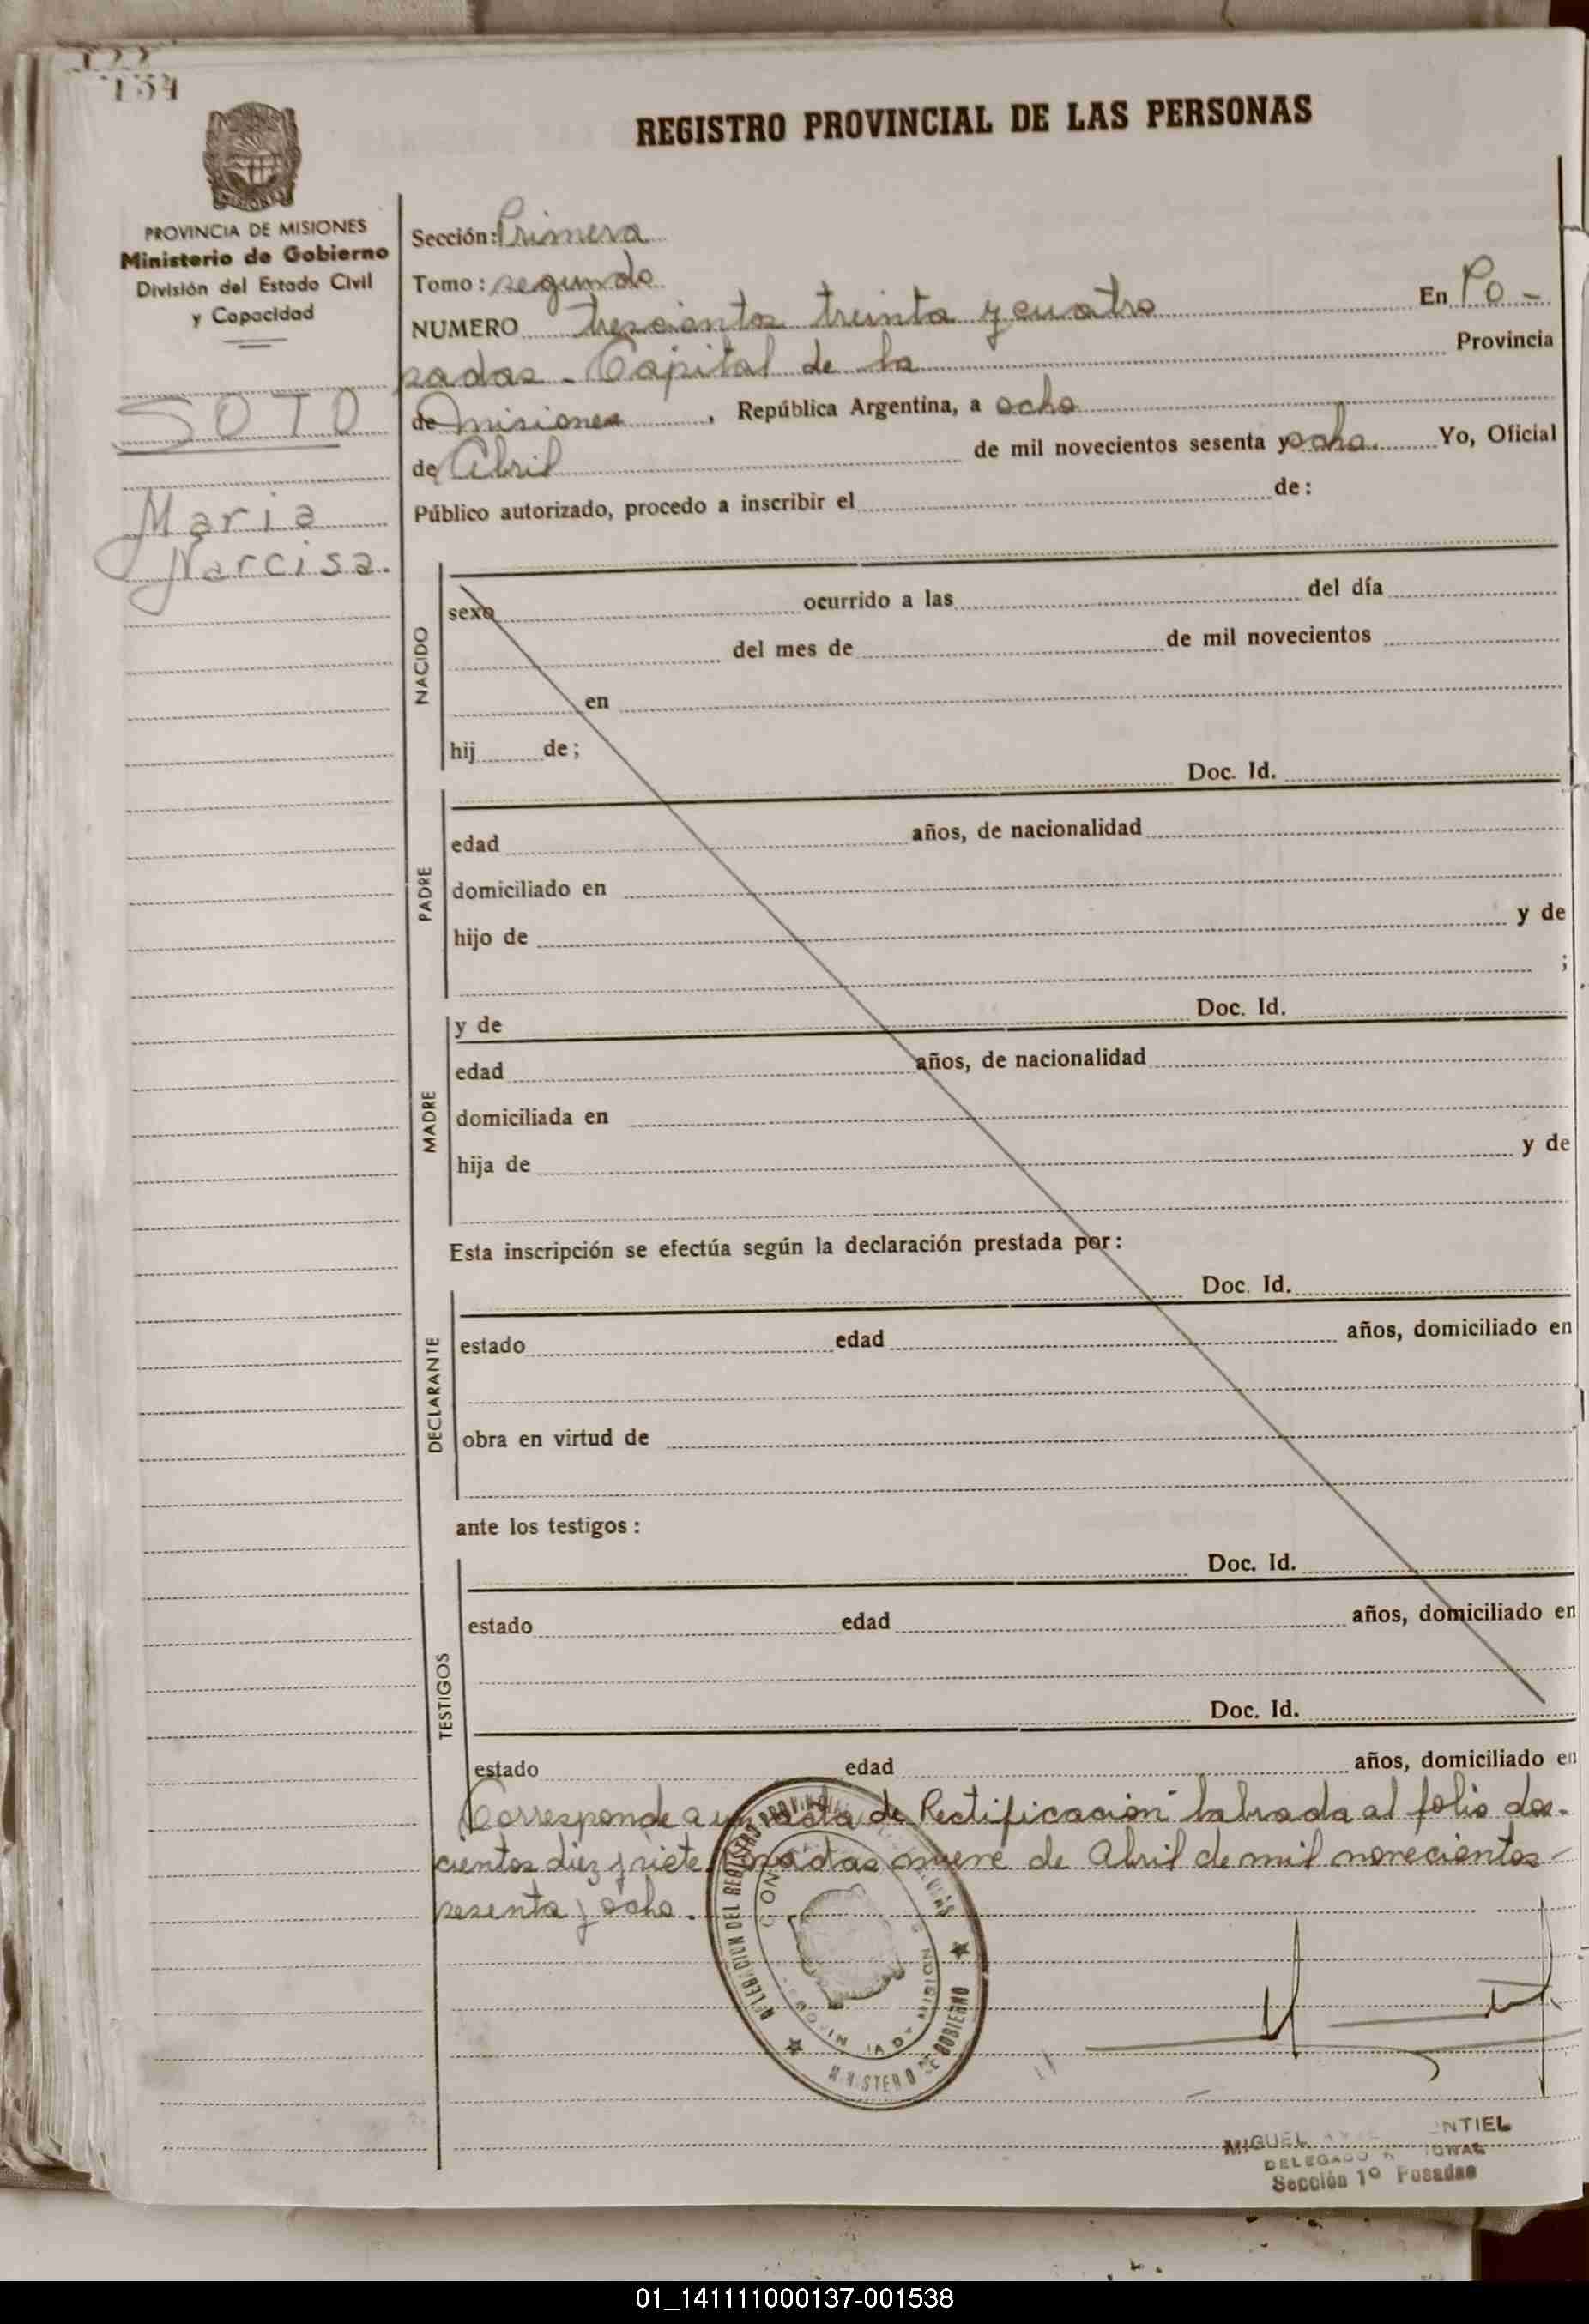 134
REGISTRO PROVINCIAL DE LAS PERSONAS
MISIONES
PROVINCIA DE MISIONES
Ministerio de Gobierno
División del Estado Civil
y Capacidad
SOTO
Maria
Narcisa.
Sección: Primera
Tomo: segundo
NUMERO trescientos treinta y cuatro En Po-
sadas - Capital de la Provincia
de Misiones, República Argentina, a ocho
de Abril de mil novecientos sesenta y ocho. Yo, Oficial
Público autorizado, procedo a inscribir el de:
NACIDO
sexo ocurrido a las del día
del mes de de mil novecientos
en
hij de;
PADRE
Doc. Id.
edad años, de nacionalidad
domiciliado en
hijo de y de
;
MADRE
y de Doc. Id.
edad años, de nacionalidad
domiciliada en
hija de y de
Esta inscripción se efectúa según la declaración prestada por:
DECLARANTE
Doc. Id.
estado edad años, domiciliado en
obra en virtud de
ante los testigos:
TESTIGOS
Doc. Id.
estado edad años, domiciliado en
Doc. Id.
estado edad años, domiciliado en
Corresponde a un acta de Rectificación labrada al folio dos-
cientos diez y siete. Posadas nueve de Abril de mil novecientos
sesenta y ocho.
DEL REGISTRO PROVINCIAL
MINISTERIO DE GOBIERNO
MIGUEL NTIEL
DELEGADO
Sección 1º Posadas
01_141111000137-001538